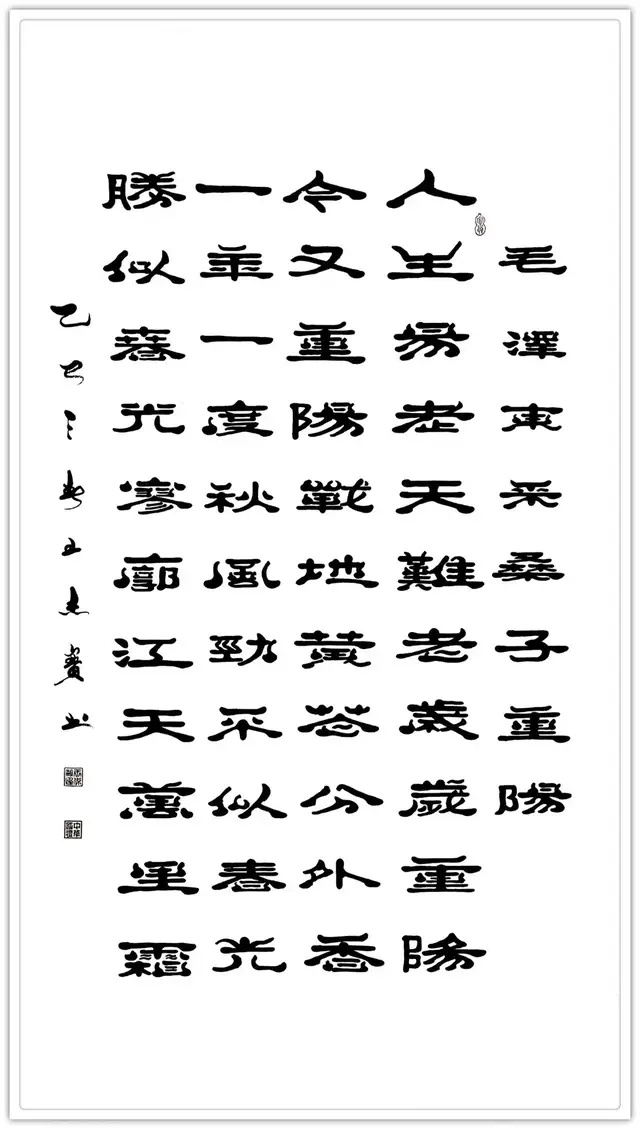 毛澤東采桑子重陽
人生易老天難老歲歲重陽
今又重陽戰地黃花分外香
一年一度秋風勁不似春光
勝似春光寥廓江天萬里霜
乙巳之春王杰寶书